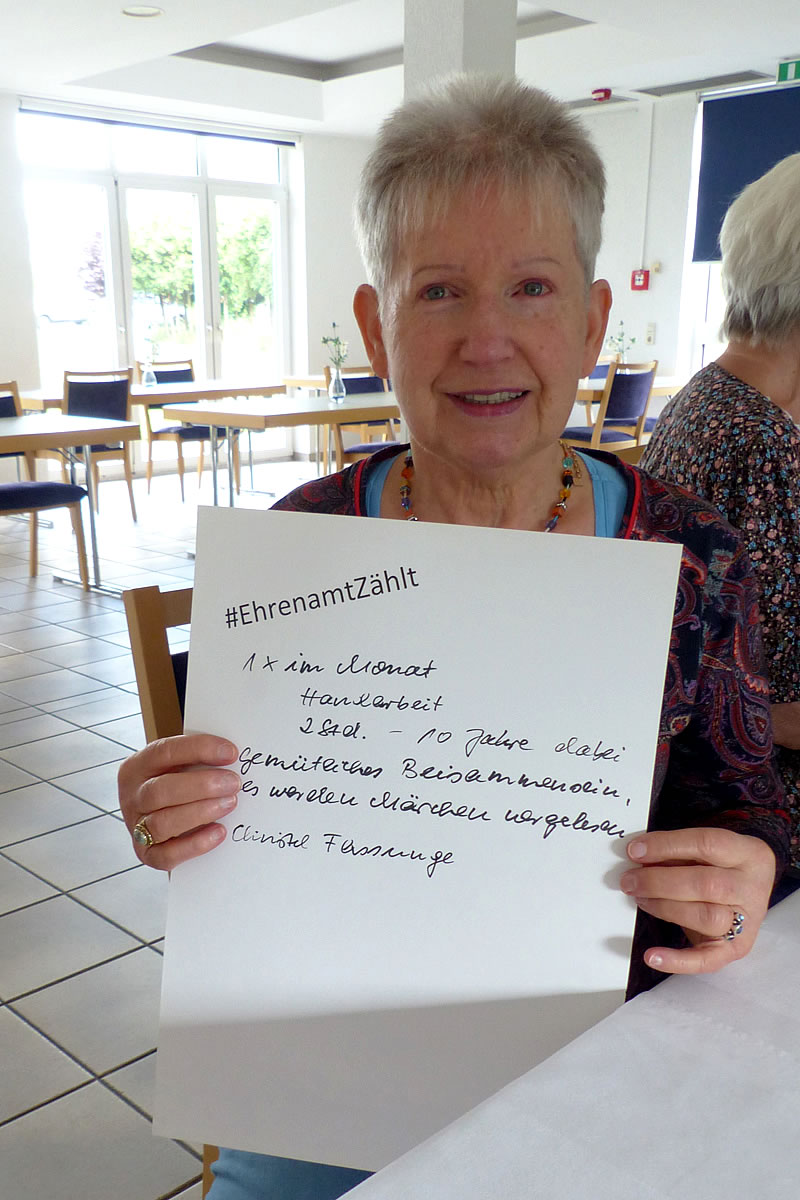 #EhrenamtZählt
1x im Monat
Handarbeit
2 Std. - 10 Jahre dabei
gemütliches Beisammensein,
es werden Märchen vorgelesen
Christel